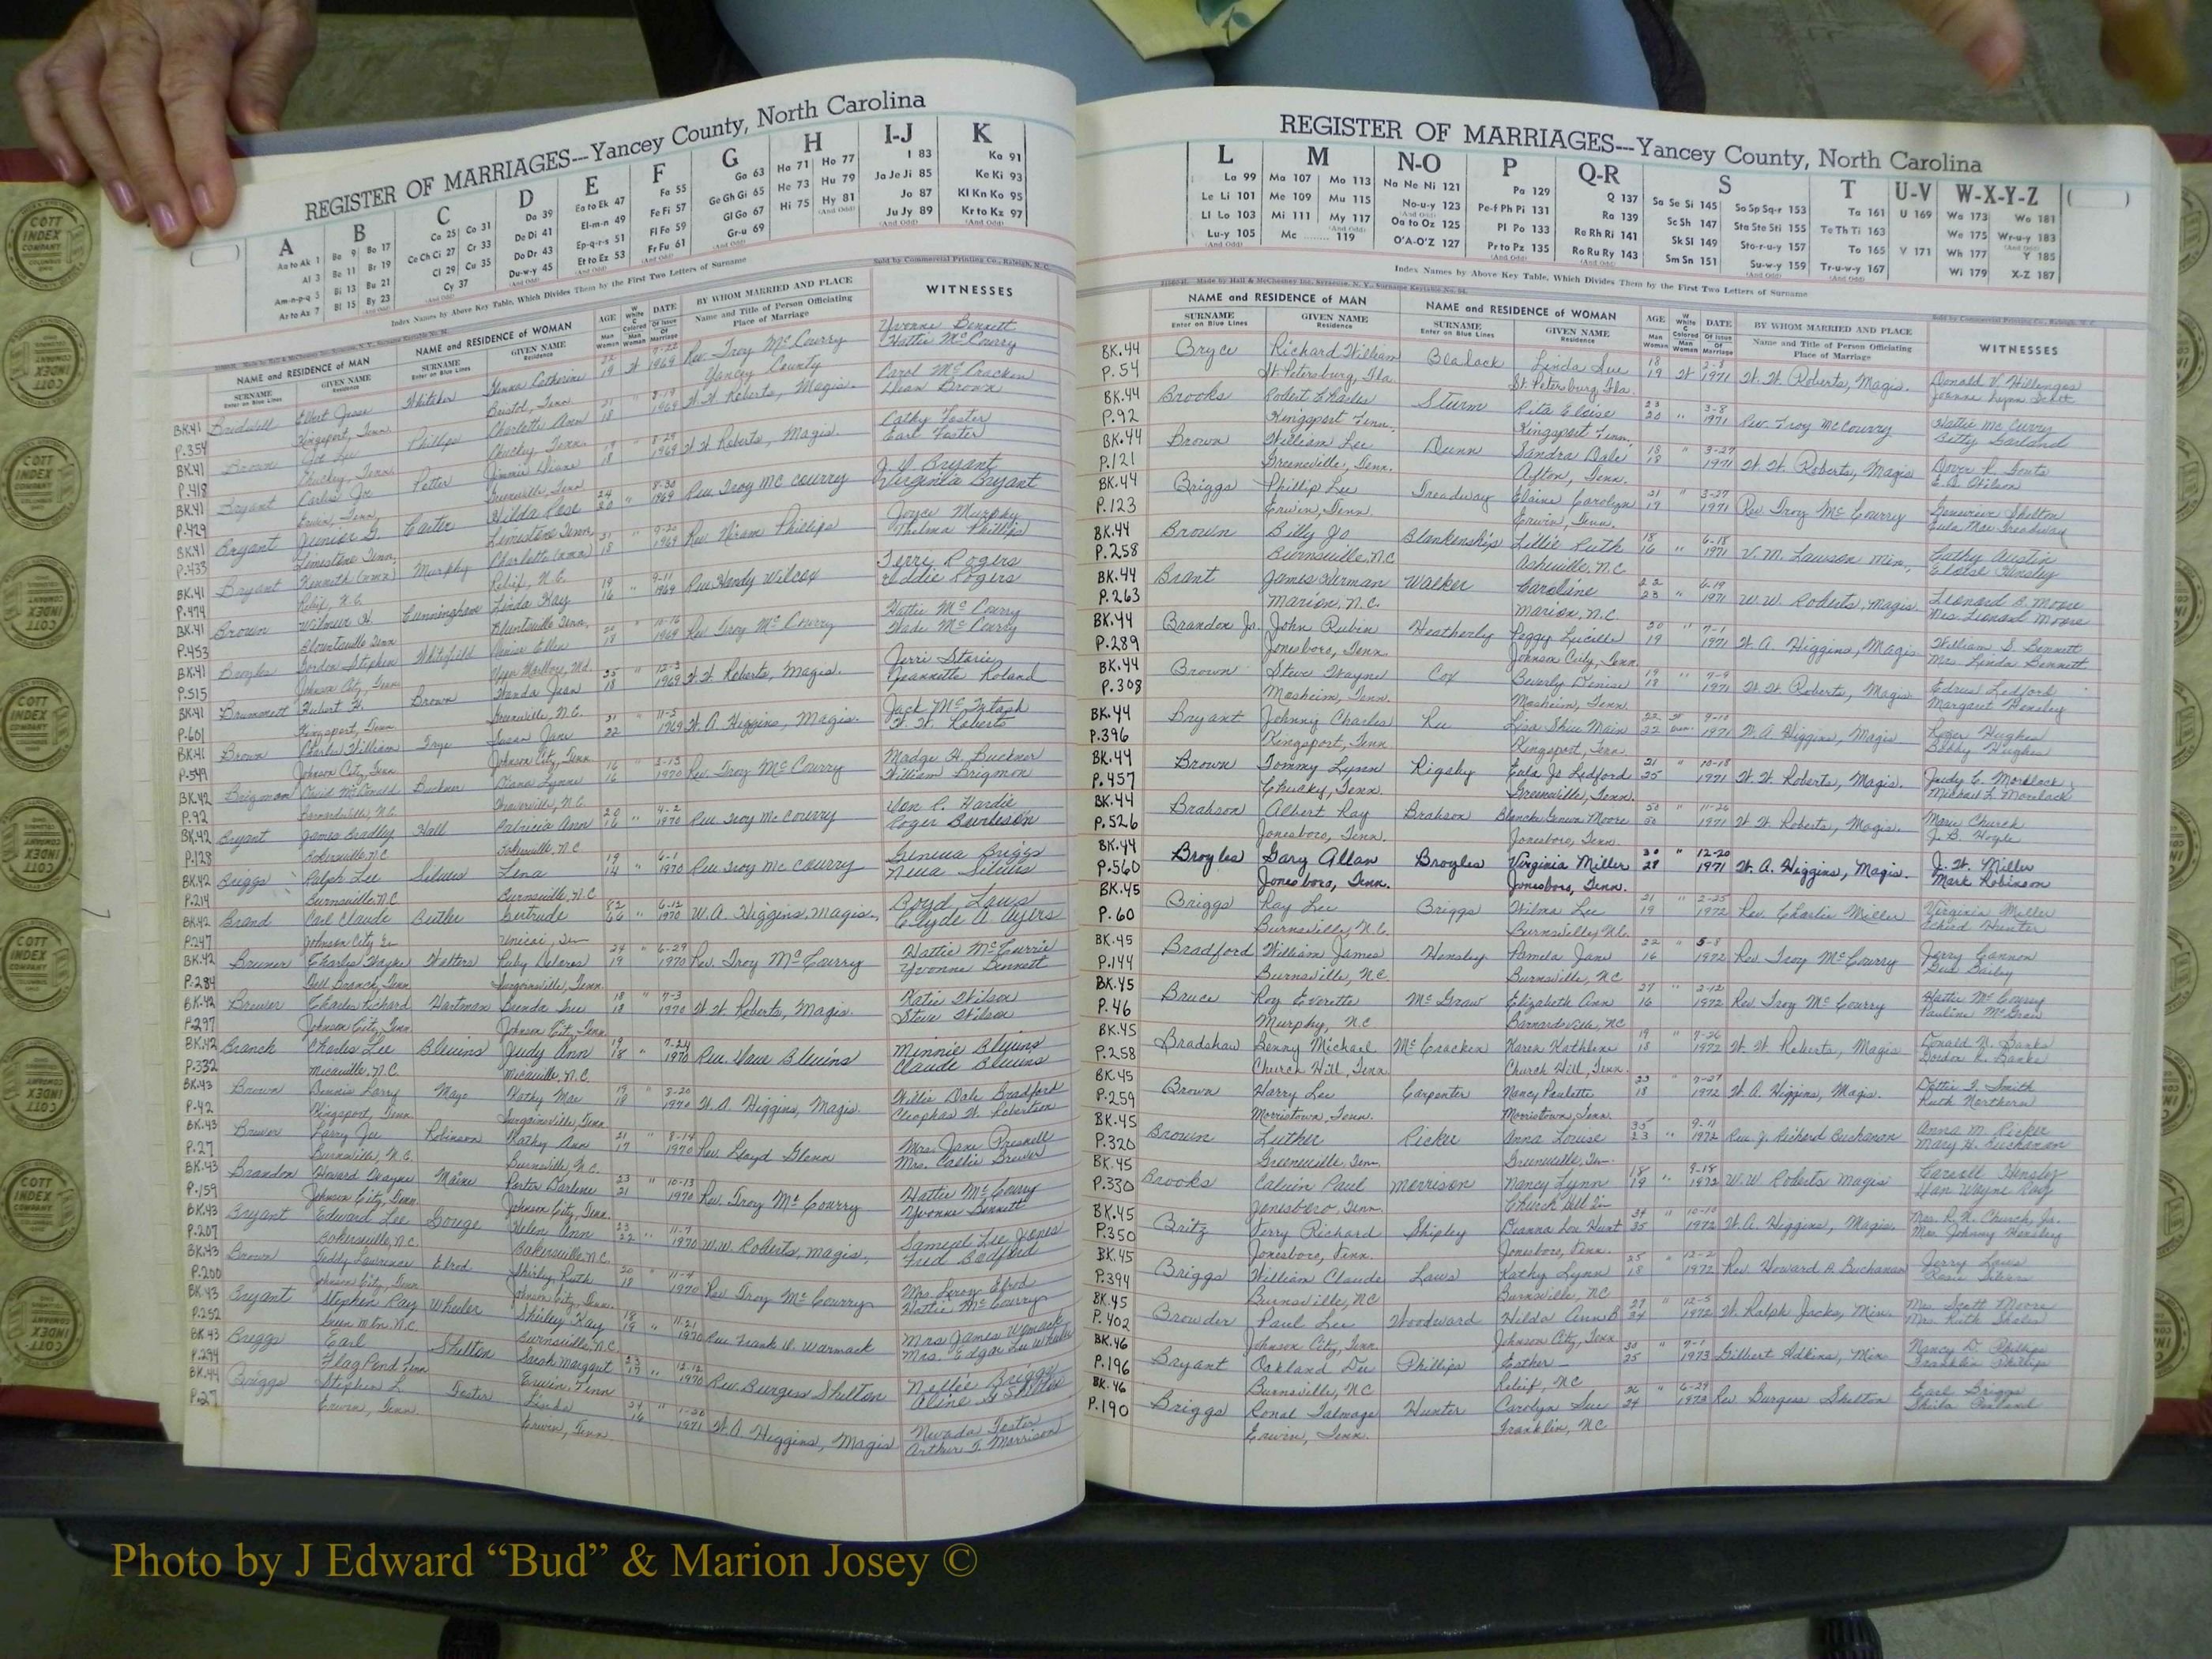 REGISTER OF MARRIAGES---Yancey County, North Carolina
A B C D E F G H I-J K
Aa to Ak 1 Ba 9 Bo 17 Ca 25 Co 31 Da 39 Ea to Ek 47 Fa 55 Ga 63 Ha 71 Ho 77 I 83 Ka 91
Al 3 Be 11 Br 19 Ce Ch Ci 27 Cr 33 De Di 41 El-m-n 49 Fe Fi 57 Ge Gh Gi 65 He 73 Hu 79 Ja Je Ji 85 Ke Ki 93
Am-n-p-q 5 Bi 13 Bu 21 Cl 29 Cu 35 Do Dr 43 Ep-q-r-s 51 Fl Fo 59 Gl Go 67 Hi 75 Hy 81 Jo 87 Kl Kn Ko 95
Ar to Az 7 Bl 15 By 23 Cy 37 Du-w-y 45 Et to Ez 53 Fr Fu 61 Gr-u 69 Ju Jy 89 Kr to Kz 97
Index Names by Above Key Table, Which Divides Them by the First Two Letters of Surname
Sold by Commercial Printing Co., Raleigh, N. C.
NAME and RESIDENCE of MAN NAME and RESIDENCE of WOMAN AGE DATE BY WHOM MARRIED AND PLACE WITNESSES
SURNAME GIVEN NAME SURNAME GIVEN NAME Name and Title of Person Officiating
Enter on Blue Lines Residence Enter on Blue Lines Residence Place of Marriage
BK.41 Bridwell Elbert Jesse Whitaker Catherine 22 W Rev. Troy McCourry Yvonne Bennett
P.354 Kingsport, Tenn. Bristol, Tenn 19 1969 Yancey County Hattie McCourry
BK.41 Brown Joe Phillips Charlotte Ann 21 " 8-19 W. W. Roberts, Magis. Carol McCracken
P.418 Chuckey, Tenn. Chuckey, Tenn. 18 1969 Dean Brown
BK.41 Bryant Carlie Jr. Potter Jimmie Diane 19 " 8-29 W. W. Roberts, Magis. Cathy Foster
P.429 Erwin, Tenn. Greenville, Tenn 18 1969 Earl Foster
BK.41 Bryant Junior G. Carter Hilda Rose 24 " 8-30 Rev Troy McCourry J. D. Bryant
P.433 Limestone Tenn. Limestone Tenn. 20 1969 Virginia Bryant
BK.41 Bryant Kenneth (nmn) Murphy Charlotte (nmn) 21 " 9-20 Rev. Hiram Phillips Joyce Murphy
P.474 Relief, N.C. Relief, N.C. 18 1969 Thelma Phillips
BK.41 Brown Wilmer H. Cunningham Linda Kay 19 " 9-11 Rev Hardy Wilcox Terre Rogers
P.453 Blountville Tenn Bluntville Tenn. 16 1969 Eddie Rogers
BK.41 Broyles Gordon Stephen Whitefield Denise Ellen 20 " 10-16 Rev. Troy McCourry Hattie McCourry
P.515 Johnson City, Tenn Upper Marlboro, Md. 18 1969 Wade McCourry
BK.41 Brummett Hubert H. Brown Wanda Jean 25 " 12-3 W. W. Roberts, Magis. Jerri Storie
P.601 Kingsport, Tenn. Greenville, N.C. 18 1969 Jeanette Roland
BK.41 Brown Charles William Frye Susan Jane 21 " 11-5 W. A. Higgins, Magis. Jack McIntosh
P.549 Johnson City, Tenn. Johnson City, Tenn. 22 1969 W. W. Roberts
BK.42 Brigman David McDonald Buckner Diana Lynne 16 " 3-13 Rev. Troy McCourry Madge H. Buckner
P.92 Barnardsville, N.C. Weaverville, N.C. 16 1970 William Brigmon
BK.42 Bryant James Bradley Hall Patricia Ann 20 " 4-2 Rev Troy McCourry Von C. Hardie
P.128 Bakersville N.C. Bakersville, N.C 16 1970 Roger Burleson
BK.42 Briggs Ralph Lee Silvers Lena 19 " 6-1 Rev Troy McCourry Geneva Briggs
P.214 Burnsville, N.C. Burnsville, N.C 14 1970 Neva Silvers
BK.42 Brand Carl Claude Butler Gertrude 82 " 6-12 W. A. Higgins, Magis., Boyd Laws
P.247 Johnson City Tn Unicoi, Tn 66 1970 Clyde A. Ayers
BK.42 Bruner Charles Wayne Walters Ruby Delores 24 " 6-29 Rev. Troy McCourry Hattie McCurrie
P.284 Bull Branch, Tenn Surgoinsville, Tenn. 19 1970 Yvonne Bennett
BK.42 Brewer Charles Richard Hartman Brenda Sue 18 " 7-3 W. W. Roberts, Magis. Katie Wilson
P.297 Johnson City, Tenn. Johnson City, Tenn. 18 1970 Steve Wilson
BK.42 Branch Charles Lee Blevins Judy Ann 19 " 7-24 Rev Dave Blevins Minnie Blevins
P.332 Micaville, N.C. Micaville, N.C. 18 1970 Claude Blevins
BK.43 Brown Dennis Larry Mayo Kathy Mae 19 " 8-20 W. A. Higgins, Magis. Willie Dale Bradford
P.42 Kingsport, Tenn Surgoinsville, Tenn. 18 1970 Cleophas W. Robertson
BK.43 Brewer Larry Joe Robinson Kathy Ann 21 " 8-14 Rev. Lloyd Glenn Mrs. Jane Presnell
P.27 Burnsville, N.C. Burnsville, N.C. 17 1970 Mrs. Callie Brewer
BK.43 Brandon Howard Dwayne Maine Portia Darlene 23 " 10-13 Rev. Troy McCourry Hattie McCourry
P.159 Johnson City, Tenn Johnson City, Tenn. 21 1970 Yvonne Bennett
BK.43 Bryant Edward Lee Gouge Helen Ann 23 " 11-7 W.W. Roberts, Magis, Samuel Lee Jones
P.207 Bakersville, N.C. Bakersville N.C. 22 1970 Fred Bradford
BK.43 Brown Teddy Lawrence Elrod Shirley Ruth 20 " 11-4 Rev Troy McCourry Mrs. Leroy Elrod
P.200 Johnson City, Tenn Johnson City, Tenn. 18 1970 Hattie McCourry
BK.43 Bryant Stephen Ray Wheeler Shirley Kay 18 " 11-21 Rev. Frank R. Warmack Mrs James Womack
P.252 Green Mtn. N.C. Burnsville, N.C. 18 1970 Mrs. Edgar Lee Wheeler
BK.43 Briggs Earl Shelton Sarah Margaret 23 " 12-12 Rev. Burgess Shelton Nellie Briggs
P.294 Flag Pond Tenn Erwin, Tenn 19 1970 Aline G Shelton
BK.44 Briggs Stephen L. Foster Linda 24 " 1-30 W. A. Higgins, Magis Nevada Foster
P.27 Erwin, Tenn. Erwin, Tenn. 16 1971 Arthur T. Morrison
REGISTER OF MARRIAGES---Yancey County, North Carolina
L M N-O P Q-R S T U-V W-X-Y-Z
La 99 Ma 107 Mo 113 Na Ne Ni 121 Pa 129 Q 137 Sa Se Si 145 So Sp Sq-r 153 Ta 161 U 169 Wa 173 Wo 181
Le Li 101 Me 109 Mu 115 No-u-y 123 Pe-f Ph Pi 131 Ra 139 Sc Sh 147 Sta Ste Sti 155 Te Th Ti 163 We 175 Wr-u-y 183
Ll Lo 103 Mi 111 My 117 Oa to Oz 125 Pl Po 133 Re Rh Ri 141 Sk Sl 149 Sto-r-u-y 157 To 165 V 171 Wh 177 Y 185
Lu-y 105 Mc 119 O'A-O'Z 127 Pr to Pz 135 Ro Ru Ry 143 Sm Sn 151 Su-w-y 159 Tr-u-w-y 167 Wi 179 X-Z 187
Index Names by Above Key Table, Which Divides Them by the First Two Letters of Surname
Made by Hall & McChesney Inc., Syracuse, N. Y., Surname Keytable No. 54. Sold by Commercial Printing Co., Raleigh, N. C.
NAME and RESIDENCE of MAN NAME and RESIDENCE of WOMAN AGE DATE BY WHOM MARRIED AND PLACE WITNESSES
SURNAME GIVEN NAME SURNAME GIVEN NAME Name and Title of Person Officiating
Enter on Blue Lines Residence Enter on Blue Lines Residence Place of Marriage
BK.44 Bryce Richard William Blalock Linda Sue 18 W W. W. Roberts, Magis. Donald V. Hillenges
P.54 St. Petersburg, Fla. St. Petersburg, Fla. 19 1971 Joanne Lynn Scott
BK.44 Brooks Robert Charles Sturm Rita Eloise 23 " 3-8 Rev. Troy McCourry Hattie McCurry
P.92 Kingsport Tenn. Kingsport Tenn. 20 1971 Betty Garland
BK.44 Brown William Lee Dunn Sandra Dale 18 " 3-27 W. W. Roberts, Magis Dover P. Fouts
P.121 Greeneville, Tenn. Afton, Tenn. 18 1971 E. A. Wilson
BK.44 Briggs Phillip Lee Treadway Elaine Carolyn 21 " 3-27 Rev Troy McCourry Genevieve Shelton
P.123 Erwin, Tenn. Erwin, Tenn. 19 1971 Eula Mae Treadway
BK.44 Brown Billy Jo Blankenship Lillie Ruth 18 " 6-18 V. M. Lawson Min, Cathy Austin
P.258 Burnsville, N.C Asheville, N.C 16 1971 Eloise Hensley
BK.44 Brant James Herman Walker Caroline 22 " 6-19 W. W. Roberts, Magis Leonard B. Moore
P.263 Marion, N.C. Marion, N.C. 23 1971 Mrs. Leonard Moore
BK.44 Brandon Jr. John Rubin Heatherly Peggy Lucille 20 " 7-1 W. A. Higgins, Magis William S. Bennett
P.289 Jonesboro, Tenn. Johnson City, Tenn. 19 1971 Mrs Linda Bennett
BK.44 Brown Steve Wayne Cox Beverly Denise 19 " 7-9 W. W. Roberts, Magis Edrus Ledford
P.308 Mosheim, Tenn. Mosheim, Tenn. 18 1971 Margaret Hensley
BK.44 Bryant Johnny Charles Lu Lisa Shiu Main 22 W 9-10 W. A. Higgins, Magis Roger Hughes
P.396 Kingsport, Tenn Kingsport, Tenn 22 1971 Bobby Hughes
BK.44 Brown Tommy Lynn Rigsby Eula Jo Ledford 21 " 10-18 W. W. Roberts, Magis. Judy C. Morelock
P.457 Chucky, Tenn. Greeneville, Tenn. 25 1971 Michael L. Morelock
BK.44 Brahson Albert Ray Brahson Blanche Geneva Moore 50 " 11-26 W. W. Roberts, Magis. Marie Church
P.526 Jonesboro, Tenn. Jonesboro, Tenn. 50 1971 J. B. Hoyle
BK.44 Broyles Gary Allan Broyles Virginia Miller 30 " 12-20 W. A. Higgins, Magis. J. W. Miller
P.560 Jonesboro, Tenn. Jonesboro, Tenn. 28 1971 Mark Robinson
BK.45 Briggs Ray Lee Briggs Wilma Lee 21 " 2-25 Rev. Charlie Miller Virginia Miller
P.60 Burnsville, N.C. Burnsville, N.C. 19 1972 Hunter
BK.45 Bradford William James Hensley Pamela Jane 22 " 5-8 Rev Troy McCourry Jerry Cannon
P.144 Burnsville, N.C Burnsville, NC 16 1972 Bailey
BK.45 Bruce Roy Everette McGraw Elizabeth Ann 27 " 2-12 Rev Troy McCourry Hattie McCourry
P.46 Murphy, N.C Barnardsville, NC 16 1972 Pauline McGraw
BK.45 Bradshaw Benny Michael McCracken Karen Kathlene 19 " 7-26 W. W. Roberts, Magis Donald W. Banks
P.258 Church Hill, Tenn. Church Hill, Tenn. 18 1972 Gordon R. Banks
BK.45 Brown Harry Lee Carpenter Nancy Paulette 23 " 7-27 W. A. Higgins, Magis. Dottie I. Smith
P.259 Morristown, Tenn. Morristown, Tenn. 18 1972 Ruth Northern
BK.45 Brown Luther Ricker Anna Louise 35 " 9-11 Rev. J. Richard Buchanan Anna M. Ricker
P.320 Greeneville, Tenn Greeneville, Tn 23 1972 Mary H. Buchanan
BK.45 Brooks Calvin Paul Morrison Nancy Lynn 18 " 9-18 W.W. Roberts Magis Carroll Hensley
P.330 Jonesboro, Tenn. Church Hill Tn 19 1972 Dan Wayne Ray
BK.45 Britz Terry Richard Shipley Deanna Lou Hunt 34 " 10-10 W. A. Higgins, Magis. Mrs. R. N. Church, Jr.
P.350 Jonesboro, Tenn. Jonesboro, Tenn. 35 1972 Mrs. Johnny Hensley
BK.45 Briggs William Claude Laws Kathy Lynn 25 " 12-2 Rev. Howard A Buchanan Jerry Laws
P.394 Burnsville, NC Burnsville, NC 18 1972 Rosie Silvers
BK.45 Browder Paul Lee Woodward Hilda Ann B 29 " 12-5 W. Ralph Jacks, Min. Mrs. Scott Moore
P.402 Johnson City, Tenn Johnson City, Tenn 34 1972 Mrs. Ruth Sholes
BK.46 Bryant Oakland Dee Phillips Esther 30 " 7-1 Gilbert Adkins, Min Nancy D. Phillips
P.196 Burnsville, NC Relief, NC 25 1973 Franklin Phillips
BK.46 Briggs Ronal Talmage Hunter Carolyn Sue 26 " 6-29 Rev Burgess Shelton Earl Briggs
P.190 Erwin, Tenn. Franklin, NC 24 1973 Shila
COTT
INDEX
COMPANY
Photo by J Edward “Bud” & Marion Josey ©